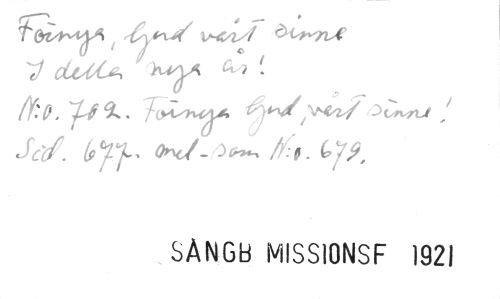 Förnya, Gud vårt sinne
I detta nya år!
N:o. 702. Förnya Gud, vårt sinne!
Sid. 677. mel-som N:o. 679.
SÅNGB MISSIONSF 1921